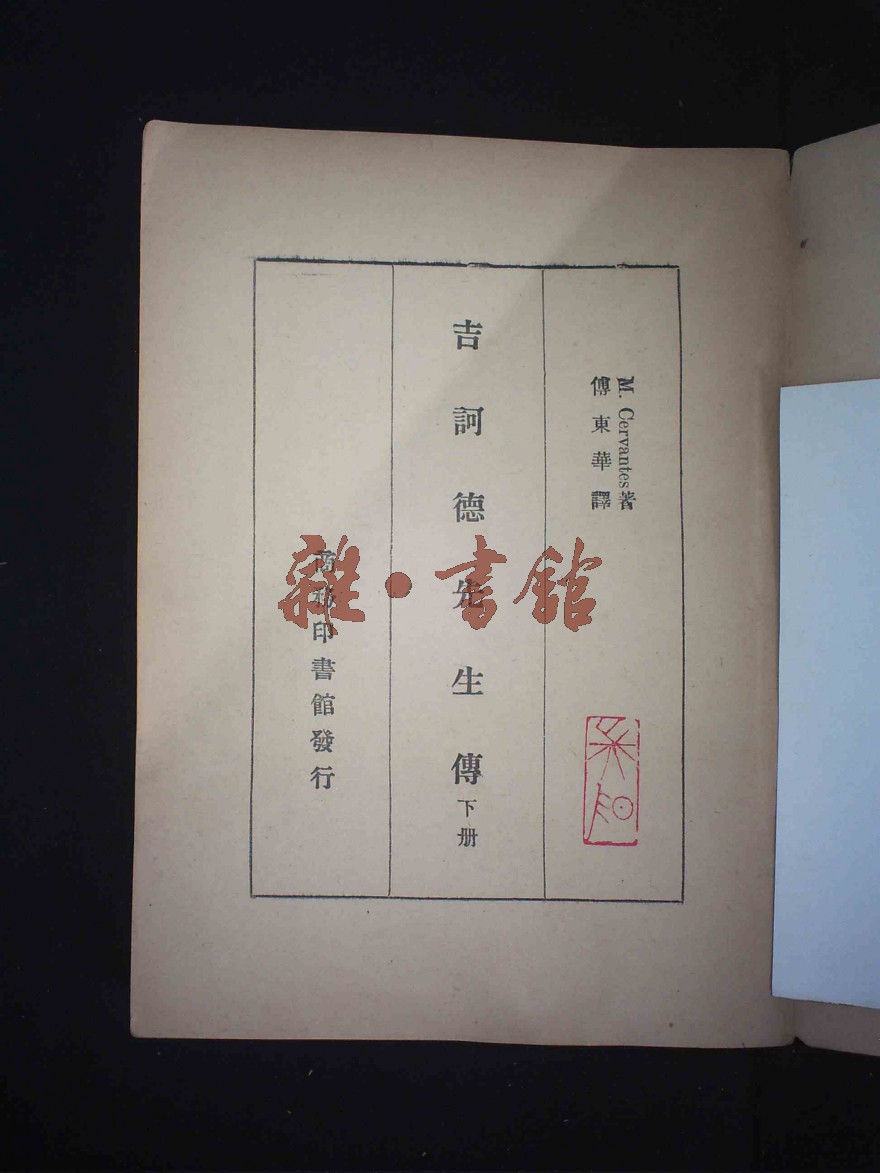 M. Cervantes著
傅東華譯
吉訶德先生傳下册
商務印書館發行
雜·書館